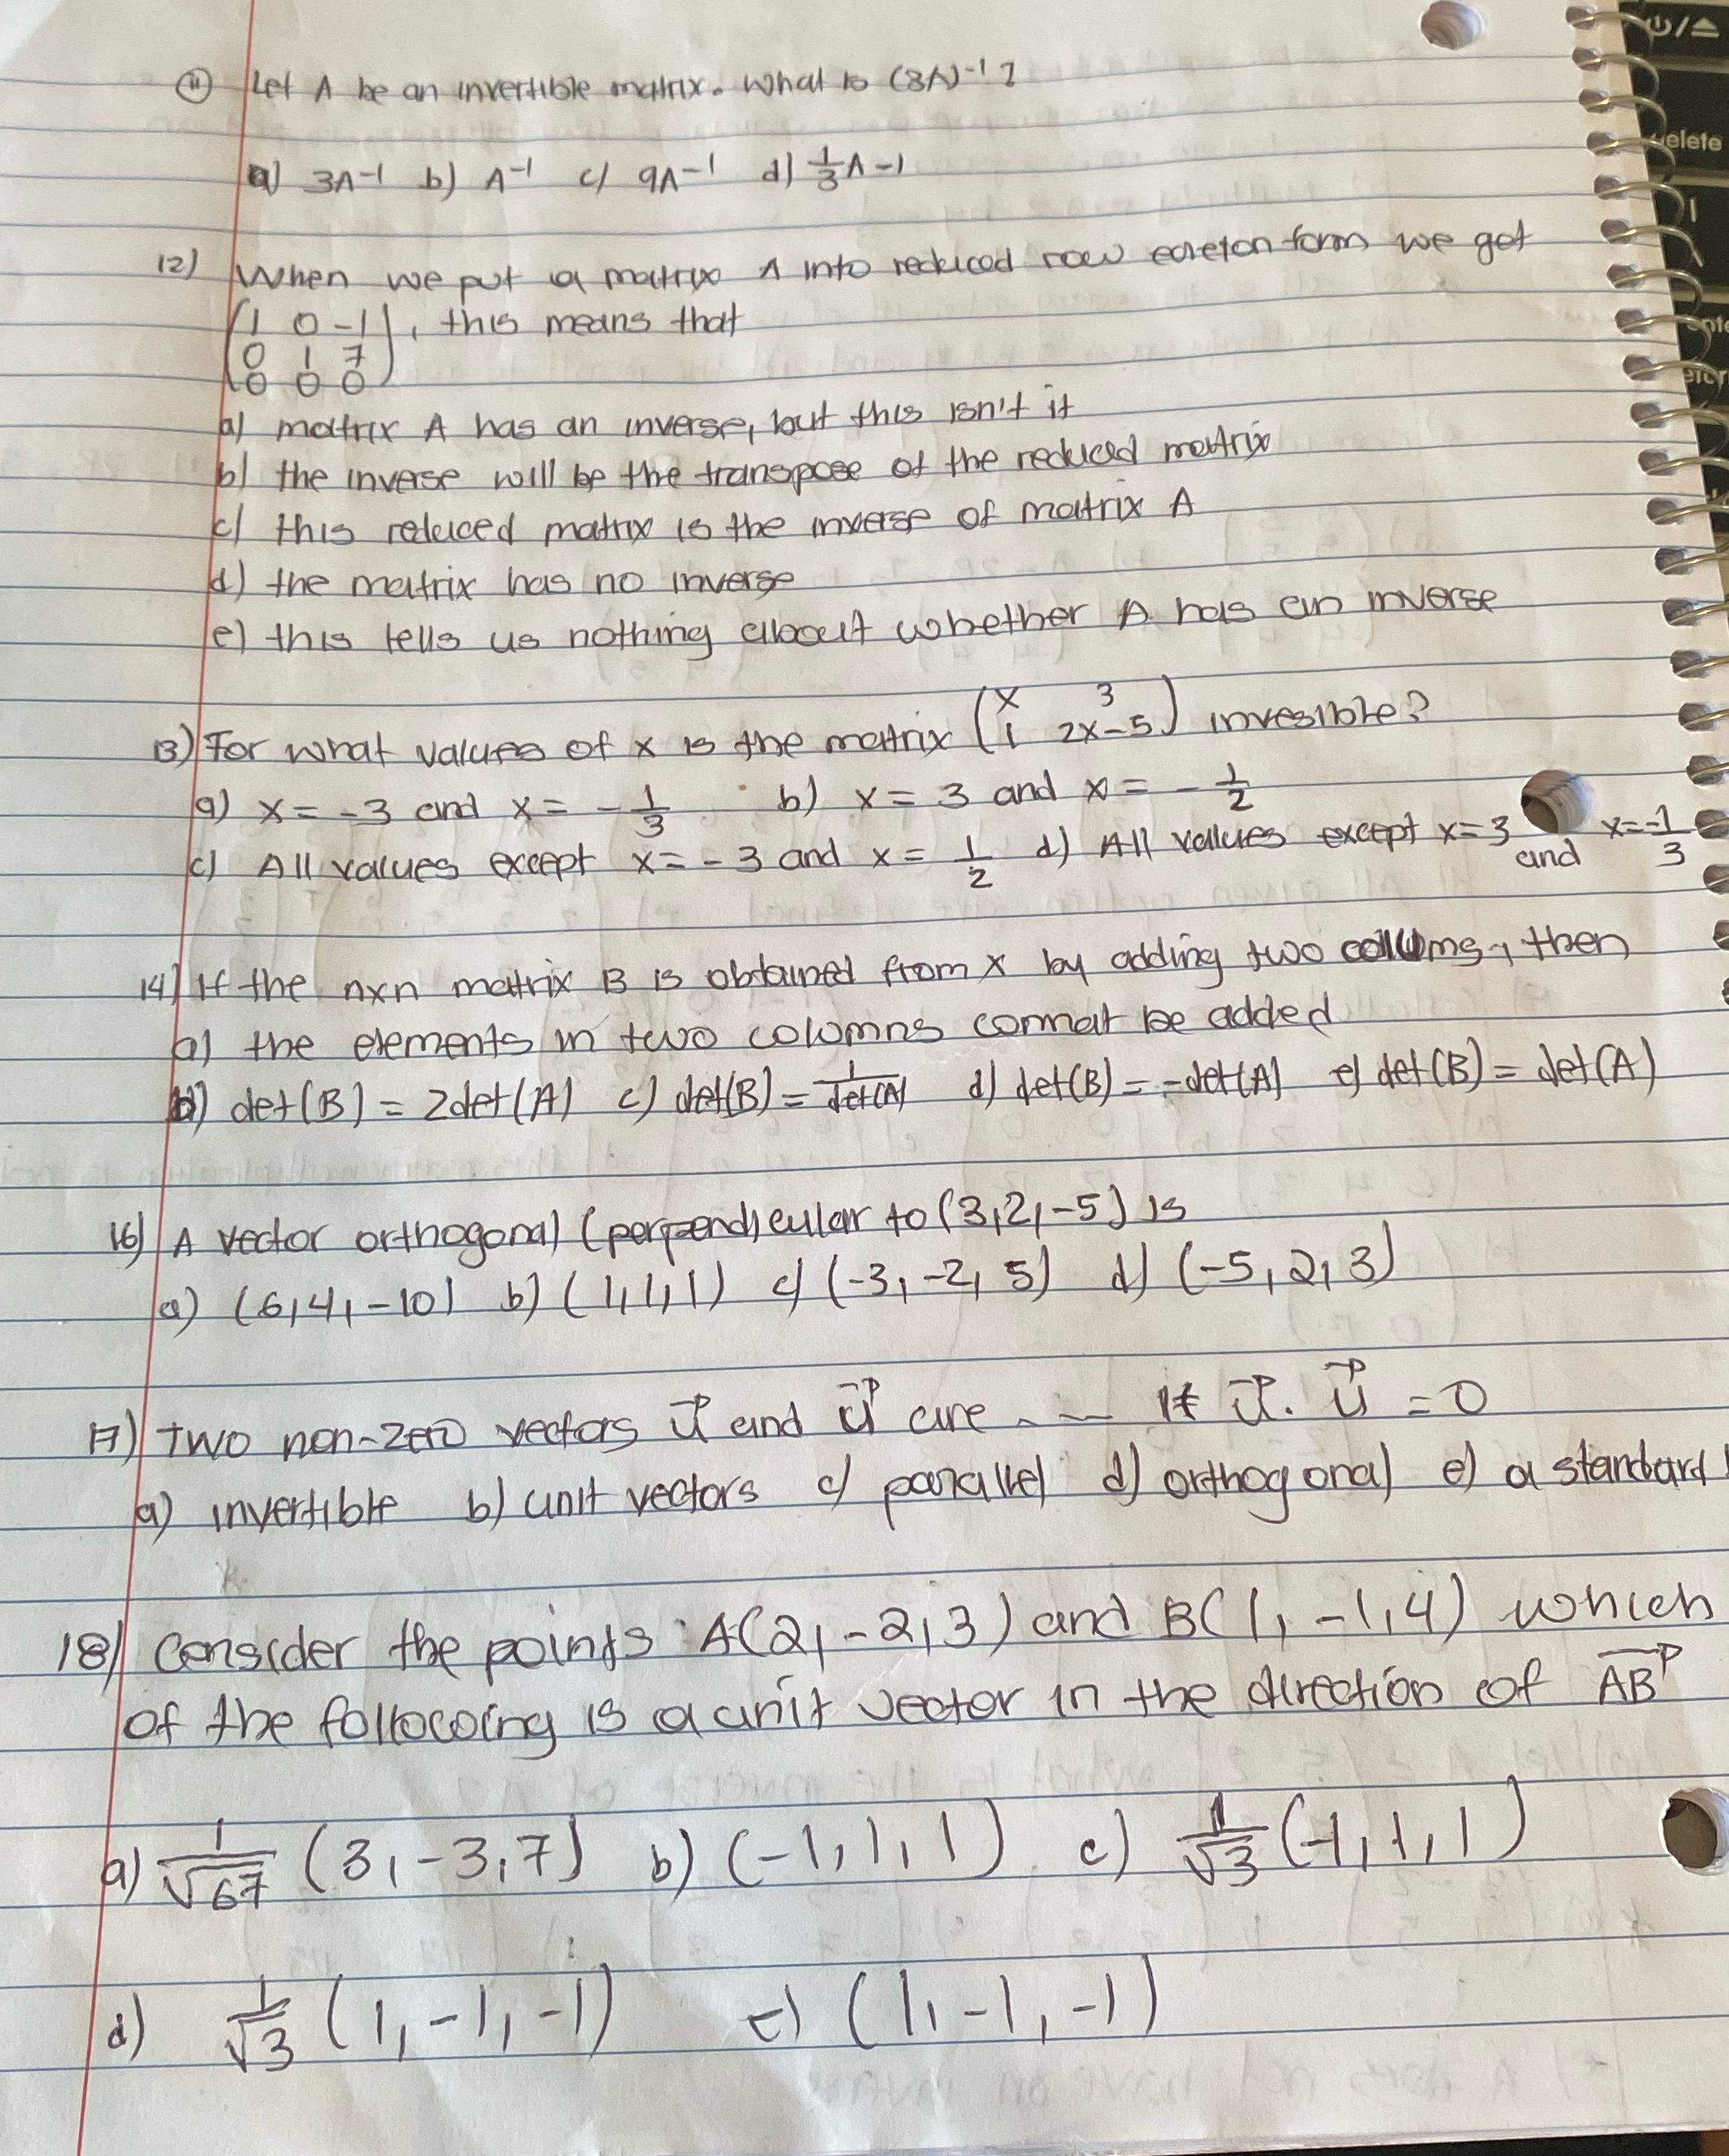 11) Let A be an invertible matrix. What is (3A)⁻¹?
a) 3A⁻¹ b) A⁻¹ c) 9A⁻¹ d) 1/3 A-1
12) When we put a matrix A into reduced row echelon form we get
(1 0 -1), this means that
0 1 7
0 0 0
a) matrix A has an inverse, but this isn't it
b) the inverse will be the transpose of the reduced matrix
c) this reduced matrix is the inverse of matrix A
d) the matrix has no inverse
e) this tells us nothing about whether A has an inverse
13) For what values of x is the matrix (x 3
1 2x-5) invesible?
a) x = -3 and x = -1/3 b) x = 3 and x = -1/2
c) All values except x = -3 and x = 1/2 d) All values except x = 3 and x = -1/3
14) If the nxn matrix B is obtained from x by adding two columns, then
a) the elements in two colomns connot be added
b) det(B) = 2det(A) c) det(B) = 1/det(A) d) det(B) = -det(A) e) det(B) = det(A)
16) A vector orthogonal (perpendicular to (3,2,-5) is
a) (6,4,-10) b) (1,1,1) c) (-3,-2,5) d) (-5,2,3)
17) Two non-zero vectors u⃗ and u⃗ are --- if u⃗. u⃗ = 0
a) invertible b) unit vectors c) parallel d) orthogonal e) a standard
18) Consider the points A(2,-2,3) and B(1,-1,4) which
of the following is a unit vector in the direction of AB⃗
a) 1/√67 (3,-3,7) b) (-1,1,1) c) 1/√3 (-1,1,1)
d) 1/√3 (1,-1,-1) e) (1,-1,-1)
delete